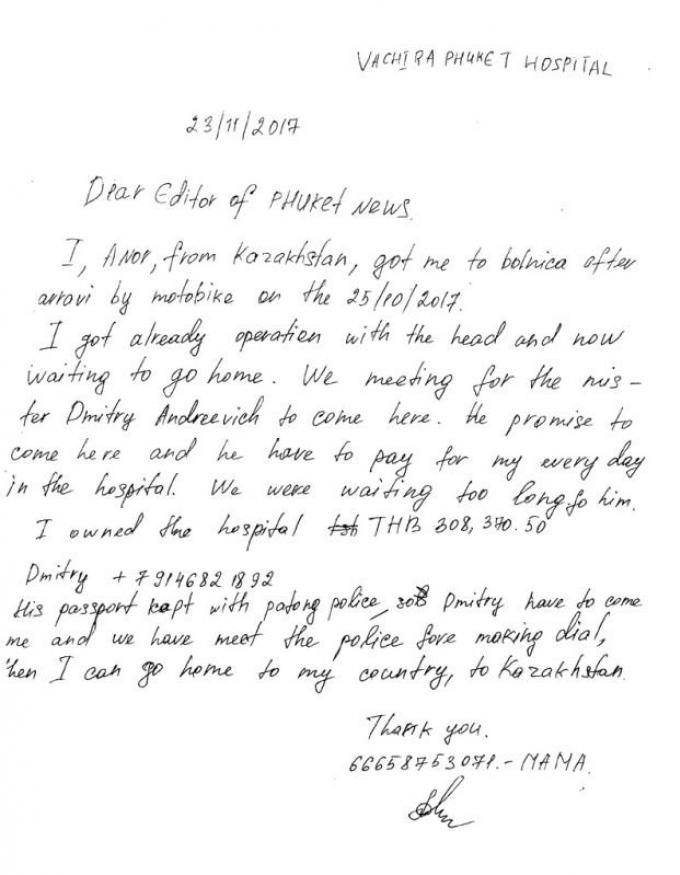 VACHIRA PHUKET HOSPITAL
23/11/2017
Dear Editor of PHUKet News.
I, ANOR, from Kazakhstan, got me to bolnica after
arrovi by motobike on the 25/10/2017.
I got already operation with the head and now
waiting to go home. We meeting for the mis-
ter Dmitry Andreevich to come here. He promise to
come here and he have to pay for my every day
in the hospital. We were waiting too long so him.
I owned the hospital THB 308,370.50
Dmitry +79146821892
His passport kapt with patong police, Dmitry have to come
me and we have meet the police fore making dial,
hen I can go home to my country, to Kazakhstan.
Thank you.
66658753071.- MAMA.